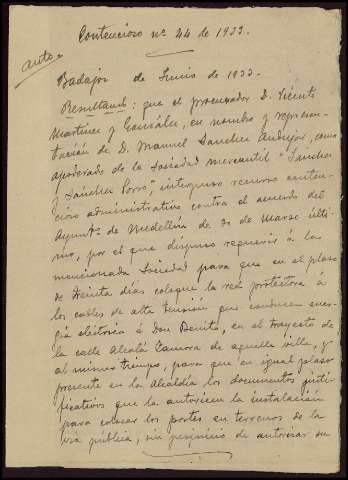 Contencioso nº 44 de 1933.
auto.
Badajoz de Junio de 1933.
Resultando: que el procurador D. Vicente
Martinez y Gonzalez, en nombre y represen-
tación de D. Manuel Sanchez Andujar, como
apoderado de la Sociedad mercantil "Sanchez
y Sanchez Porro", interpuso recurso conten-
cioso administrativo contra el acuerdo del
Ayuntº de Medellin de de Marzo últi-
mo, por el que dispuso requerir á la
mencionada Sociedad para que en el plazo
de treinta días coloque la red protectora á
los cables de alta tensión que conducen ener-
gía eléctrica á Don Benito, en el trayecto de
la calle Alcalá Zamora de aquella villa, y
al mismo tiempo, para que en igual plazo
presente en la Alcaldía los documentos justi-
ficativos que la autoricen la instalación
para colocar los postes en terrenos de la
via pública, sin perjuicio de autorizar su